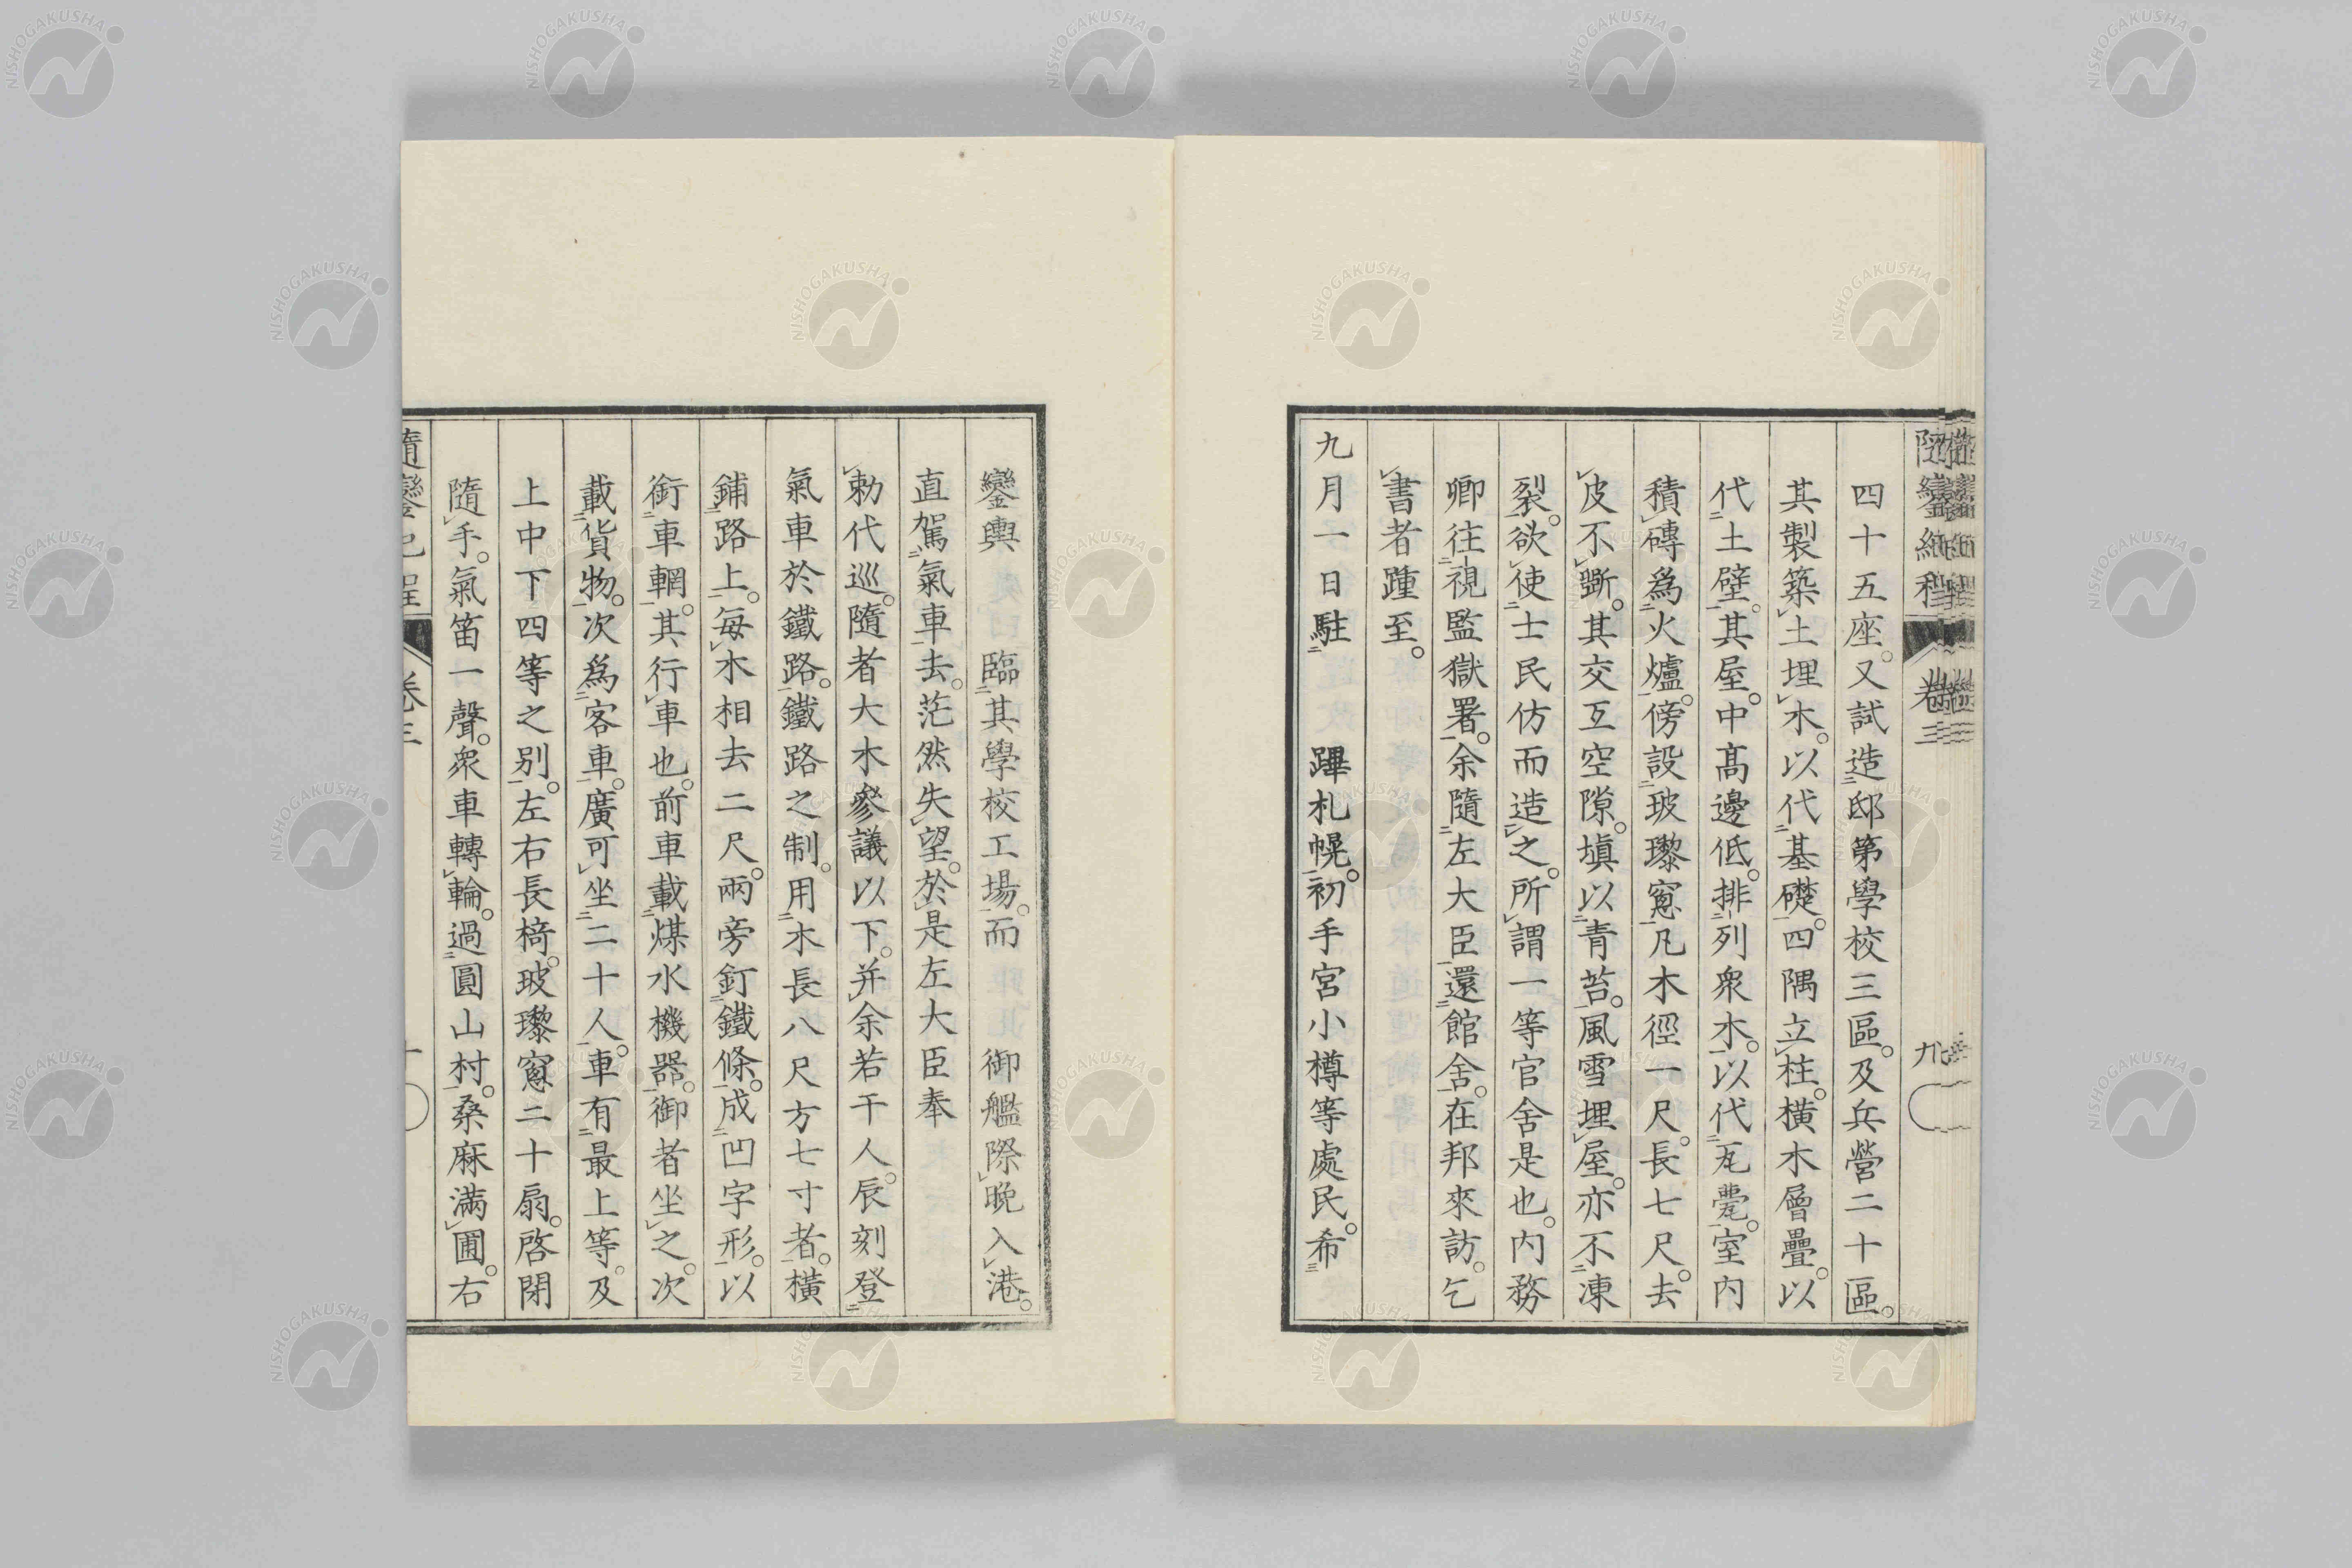 四十五座。又試造邸第學校三區。及兵營二十區。
其製築土埋木。以代基礎。四隅立柱。橫木層疊。以
代土壁。其屋。中高邊低。排列衆木。以代瓦甍。室内
積磚爲火爐。傍設玻瓈窻。凡木徑一尺。長七尺。去
皮不斲。其交互空隙。塡以青苔。風雪埋屋。亦不凍
裂。欲使士民仿而造之。所謂一等官舍是也。内務
卿往視監獄署。余隨左大臣還館舍。在邦來訪。乞
書者踵至。
九月一日駐 蹕札幌。初手宮小樽等處民。希
鑾輿 臨其學校工場。而 御艦際晚入港。
直駕氣車去。茫然失望。於是左大臣奉
勅代巡。隨者大木參議以下。并余若干人。辰刻登
氣車於鐵路。鐵路之制。用木長八尺方七寸者。橫
鋪路上。每木相去二尺。兩旁釘鐵條。成凹字形。以
銜車輞。其行車也。前車載煤水機器。御者坐之。次
載貨物。次爲客車。廣可坐二十人。車有最上等。及
上中下四等之別。左右長椅。玻瓈窻二十扇。啓閉
隨手。氣笛一聲。衆車轉輪。過圓山村。桑麻滿圃。右
隨鑾紀程 卷三
NISHOGAKUSHA